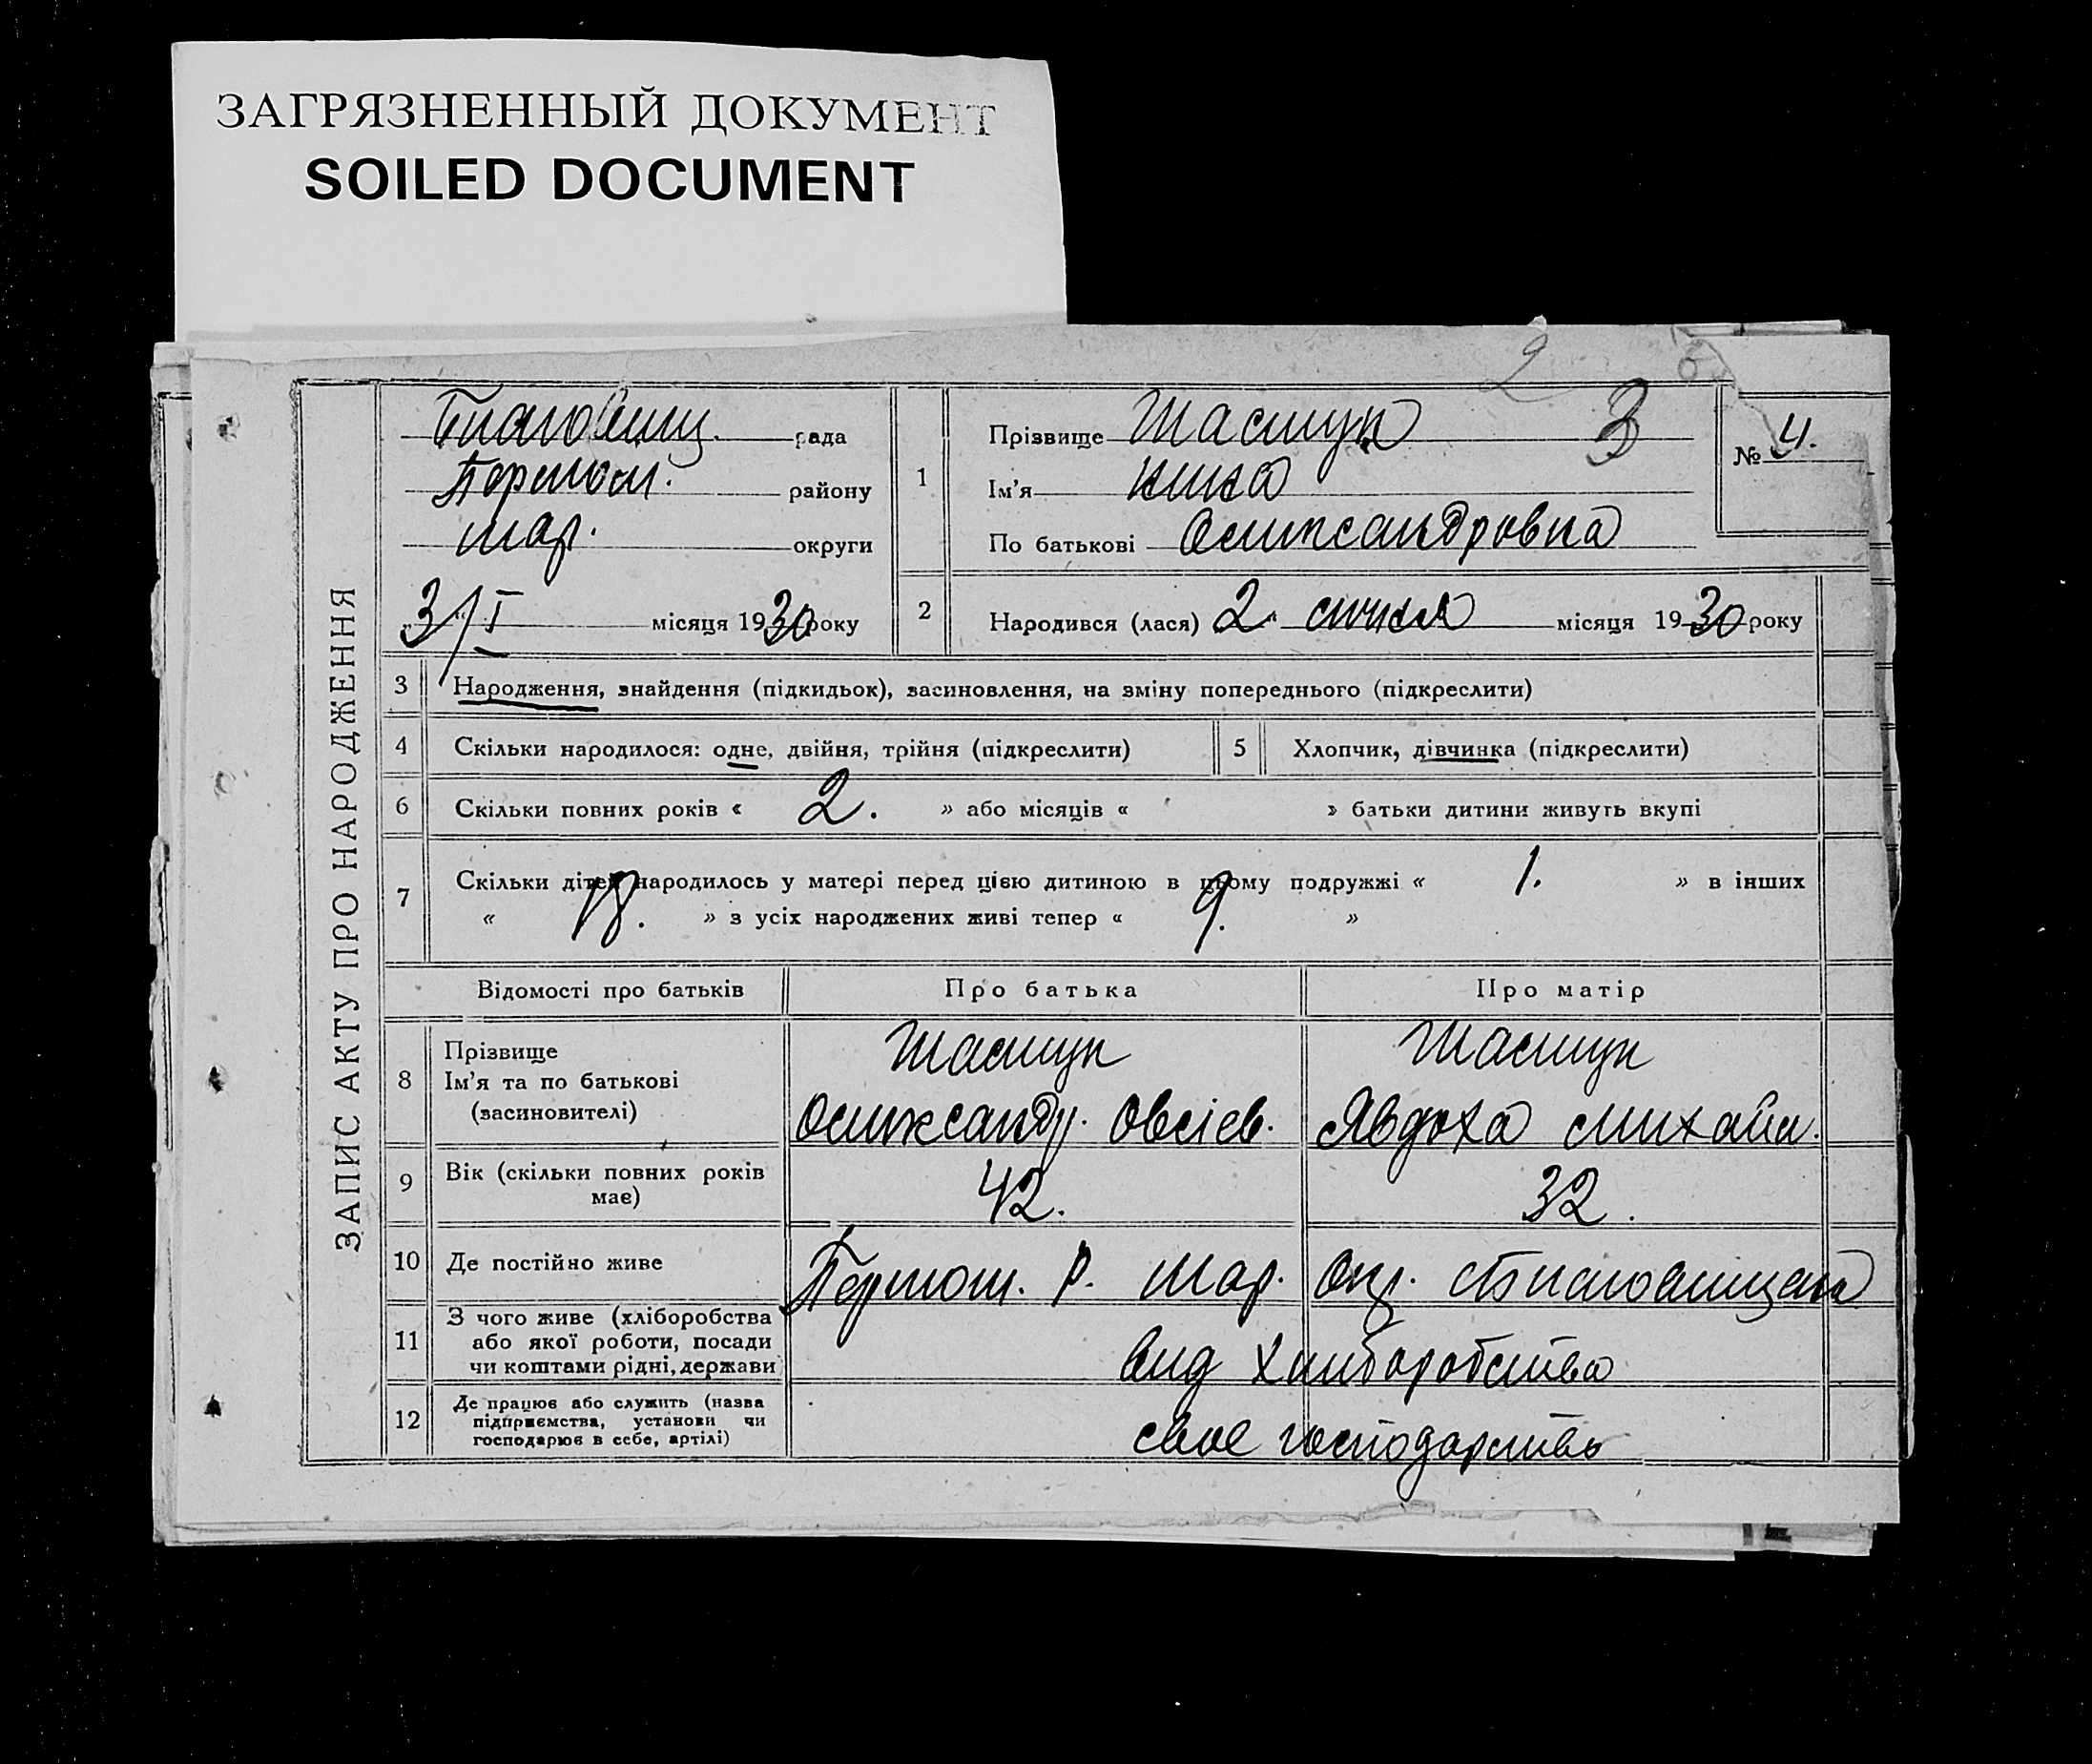 ЗАГРЯЗНЕННЫЙ ДОКУМЕНТ
SOILED DOCUMENT
2
3
№ 4.
рада
району
Мар. округи
3/I місяця 1930 року
ЗАПИС АКТУ ПРО НАРОДЖЕННЯ
1 Прізвище Шастун
Ім'я Нина
По батькові Олександровна
2 Народився (лася) 2 січня місяця 1930 року
3 Народження, знайдення (підкидьок), засиновлення, на зміну попереднього (підкреслити)
4 Скільки народилося: одне, двійня, трійня (підкреслити)
5 Хлопчик, дівчинка (підкреслити)
6 Скільки повних років « 2. » або місяців « » батьки дитини живуть вкупі
7 Скільки дітей народилось у матері перед цією дитиною в цьому подружжі « 1. » в інших
« » з усіх народжених живі тепер « 9. »
Відомості про батьків Про батька Про матір
8 Прізвище
Ім'я та по батькові
(засиновителі)
Шастун
Олександр. Овсієв.
Шастун
Явдоха Михайл.
9 Вік (скільки повних років
має)
42. 32.
10 Де постійно живе
Р. Мар. Окр.
11 З чого живе (хліборобства
або якої роботи, посади
чи коштами рідні, держави
вид Хлиборобства
12 Де працює або служить (назва
підприємства, установи чи
господарює в себе, артілі)
своє господарство